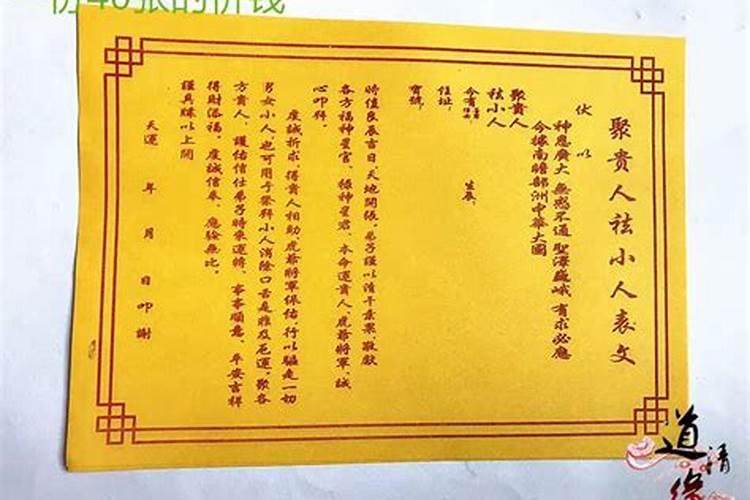 一份40张的价钱
聚貴人祛小人表文
伏以
神恩廣大 無感不通 聖澤巍峨 有求必應
今據南瞻部洲中華大國
聚貴人
祛小人
今有
生辰
住址
寶號
時值良辰吉日，天地開張，弟子謹以清干素果 敬獻
各方福神星官，祿神星君，本命運貴人，虎爺將軍，誠
心叩拜。
虔誠祈求，得貴人相助虎爺將軍保佑 行以驅走一切
男女小人，也可用于祭拜小人消除口舌是非及厄運，聚各
方貴人，護佑信仕弟子時來運轉，事事順意，平安吉祥
得財添福。虔誠信奉，應驗無比。
謹具牒以上聞
天運 年 月 日叩謝
道
清
缘